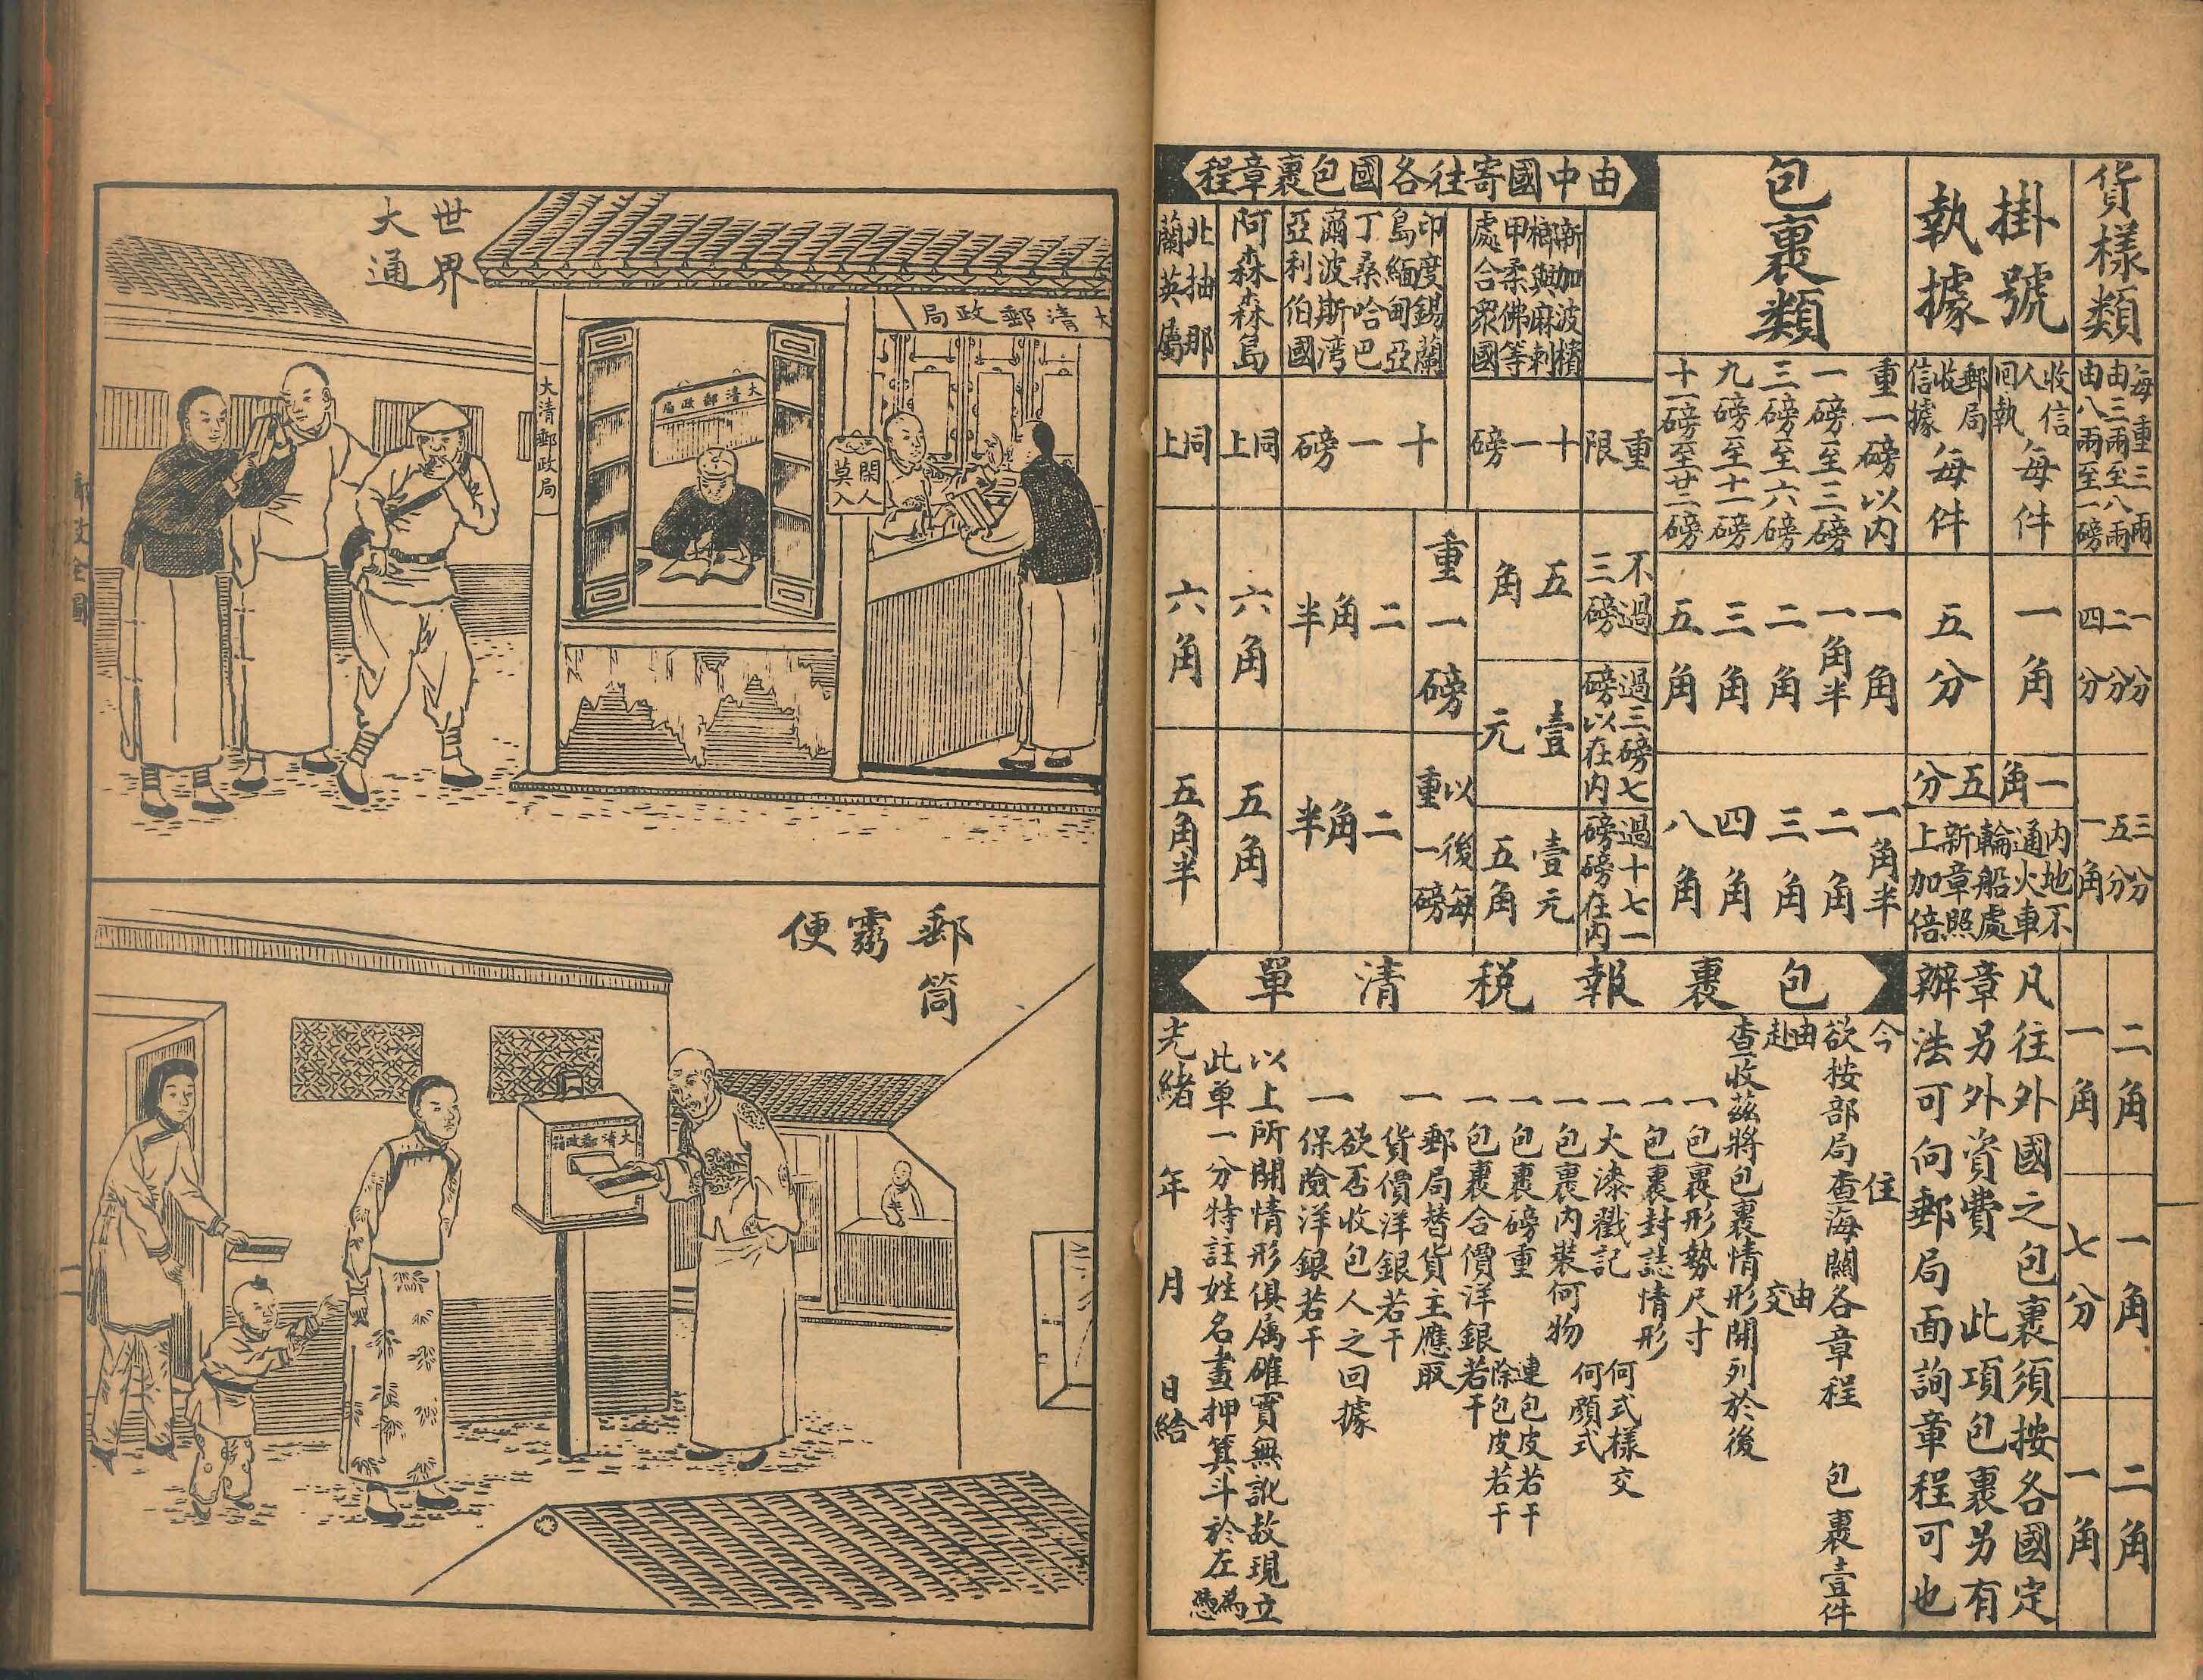 貨樣類
每重三兩
由三兩至八兩
由八兩至一磅
一分
二分
四分
三分
五分
一角
二角
一角
二角
一角
七分
一角
掛號
執據
收信
人回執
每件
郵局
收信據
每件
一角
五分
一角
五分
內地不
通火車
輪船處
新章照
上加倍
凡往外國之包裹須按各國定
章另外資費 此項包裹另有
辦法可向郵局面詢章程可也
包裹類
重一磅以內
一磅至三磅
三磅至六磅
九磅至十一磅
十一磅至廿二磅
一角
一角半
二角
三角
五角
一角半
二角
三角
四角
八角
由中國寄往各國包裹章程
重限
不過
三磅
過三磅七
磅以在內
過十七一
磅磅在內
新加波檳
榔與麻剌
甲柔佛等
處合眾國
十一磅
五角
壹元
壹元
五角
印度錫蘭
島緬甸亞
丁桑哈巴
爾波斯灣
亞利伯國
十一磅
重一磅
以後每
重一磅
二角半
二角半
阿森森島
同上
六角
五角
北抽那
蘭英屬
同上
六角
五角半
包裹報稅清單
今 住
欲按部局查海關各章程 包裹壹件
由 由
赴 交
查收茲將包裹情形開列於後
一包裹形勢尺寸
一包裹封誌情形
一火漆戳記 何式樣交
何顏式
一包裹內裝何物
一包裹磅重 連包皮若干
除包皮若干
一包裹合價洋銀若干
一郵局替貨主應取
貨價洋銀若干
一欲否收包人之回據
保險洋銀若干
以上所開情形俱屬確實無訛故現立
此單一分特註姓名畫押箕斗於左
為憑
光緒 年 月 日給
世界
大通
大清郵政局
大清郵政局
大清郵政局
閑人
莫入
郵筒
霛便
大清郵政
二